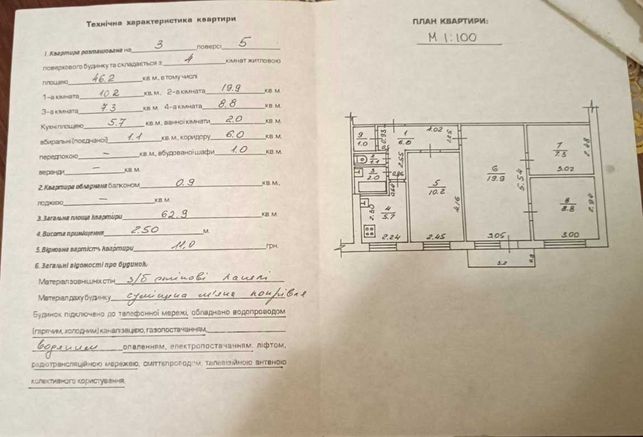 Технічна характеристика квартири
1. Квартира розташована на 3 поверсі 5
поверхового будинку та складається з 4 кімнат житловою
площею 46.2 кв.м, в тому числі
1-а кімната 10.2 кв.м, 2-а кімната 19.9 кв.м.
3-а кімната 7.3 кв.м. 4-а кімната 8.8 кв.м.
Кухні площею 5.7 кв.м, ванної кімнати 2.0 кв.м.
вбиральні (поєднаної) 1.1 кв.м, коридору 6.0 кв.м.
передпокою – кв.м, вбудованої шафи 1.0 кв.м.
веранди – кв.м.
2. Квартира обладнана балконом 0.9 кв.м,
лоджією – кв.м.
3. Загальна площа квартири 62.9 кв.м
4. Висота приміщення 2.50 м.
5. Вірновна вартість квартири 11,0 грн.
6. Загальні відомості про будинок.
Матеріал зовнішніх стін з/б стінові панелі
Матеріал даху будинку суміщена м'яка покрівля
Будинок підключено до телефонної мережі, обладнано водопроводом
(гарячим, холодним) каналізацією, газопостачанням,
водяним опаленням, електропостачанням, ліфтом,
радіотрансляційною мережею, сміттєпроводом, телевізійною антеною
колективного користування.
ПЛАН КВАРТИРИ:
М 1:100
9
1.0
0.93
1
6.0
1.02
1.25
2
1.1
2.55
3
2.0
5
10.2
4.16
6
19.9
6.54
7
7.3
2.48
3.02
8
8.8
2.94
4
5.7
2.50
2.24
2.45
3.05
3.00
3.2